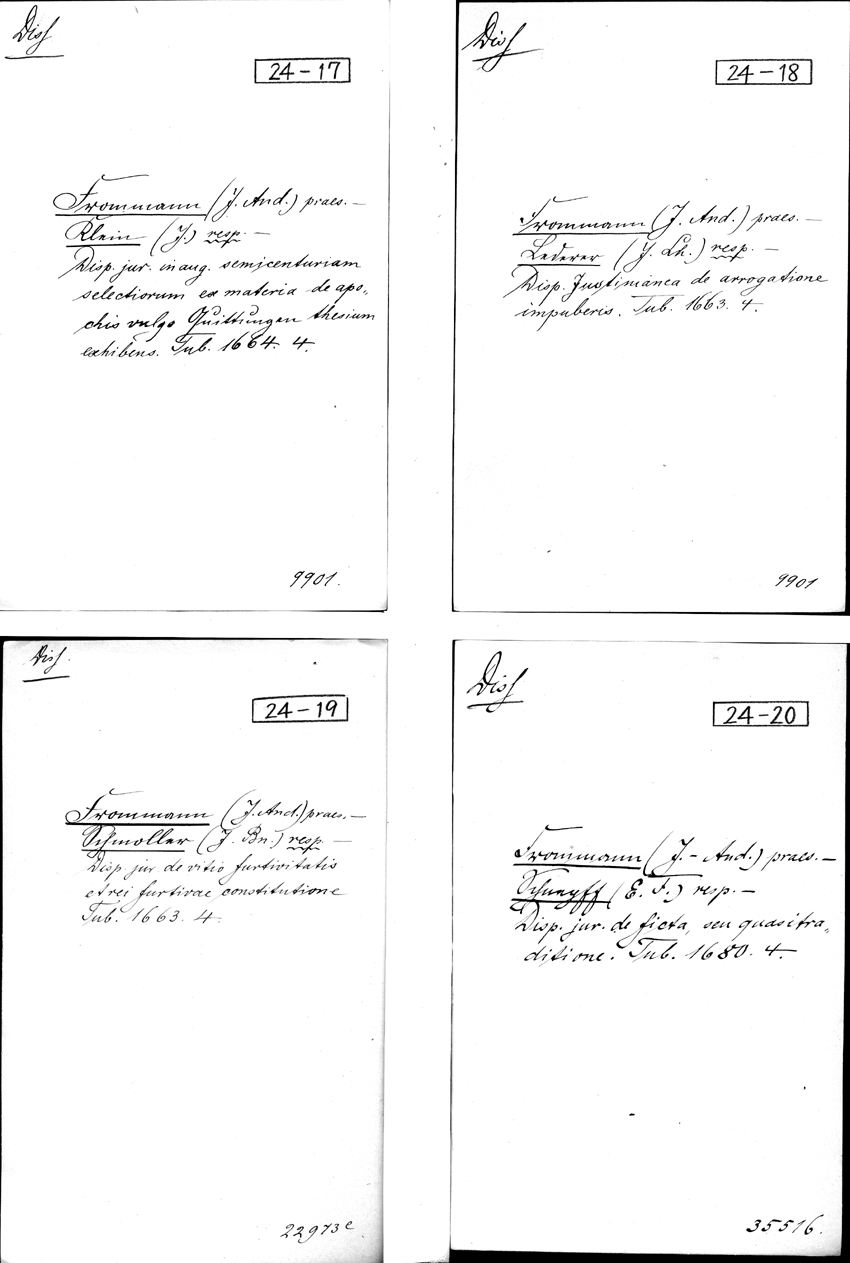 Diss
24-17
Frommann (J. And.) praes. —
Klein (J.) resp. —
Disp. jur. inaug. semicenturiam
selectiorum ex materia de apo-
chis vulgo Quittungen thesium
exhibens. Tub. 1664. 4.
9901.
Diss
24-18
Frommann (J. And.) praes. —
Lederer (J. Ch.) resp. —
Disp. Justinianea de arrogatione
impuberis. Tub. 1663. 4.
9901
Diss.
24-19
Frommann (J. And.) praes. —
Schmoller (J. Bn.) resp. —
Disp. jur. de vitio furtivitatis
et rei furtivae constitutione
Tub. 1663. 4.
22973e
Diss
24-20
Frommann (J.- And.) praes. —
Schnepff (E. F.) resp. —
Disp. jur. de ficta, seu quasi tra-
ditione. Tub. 1680. 4.
35516.